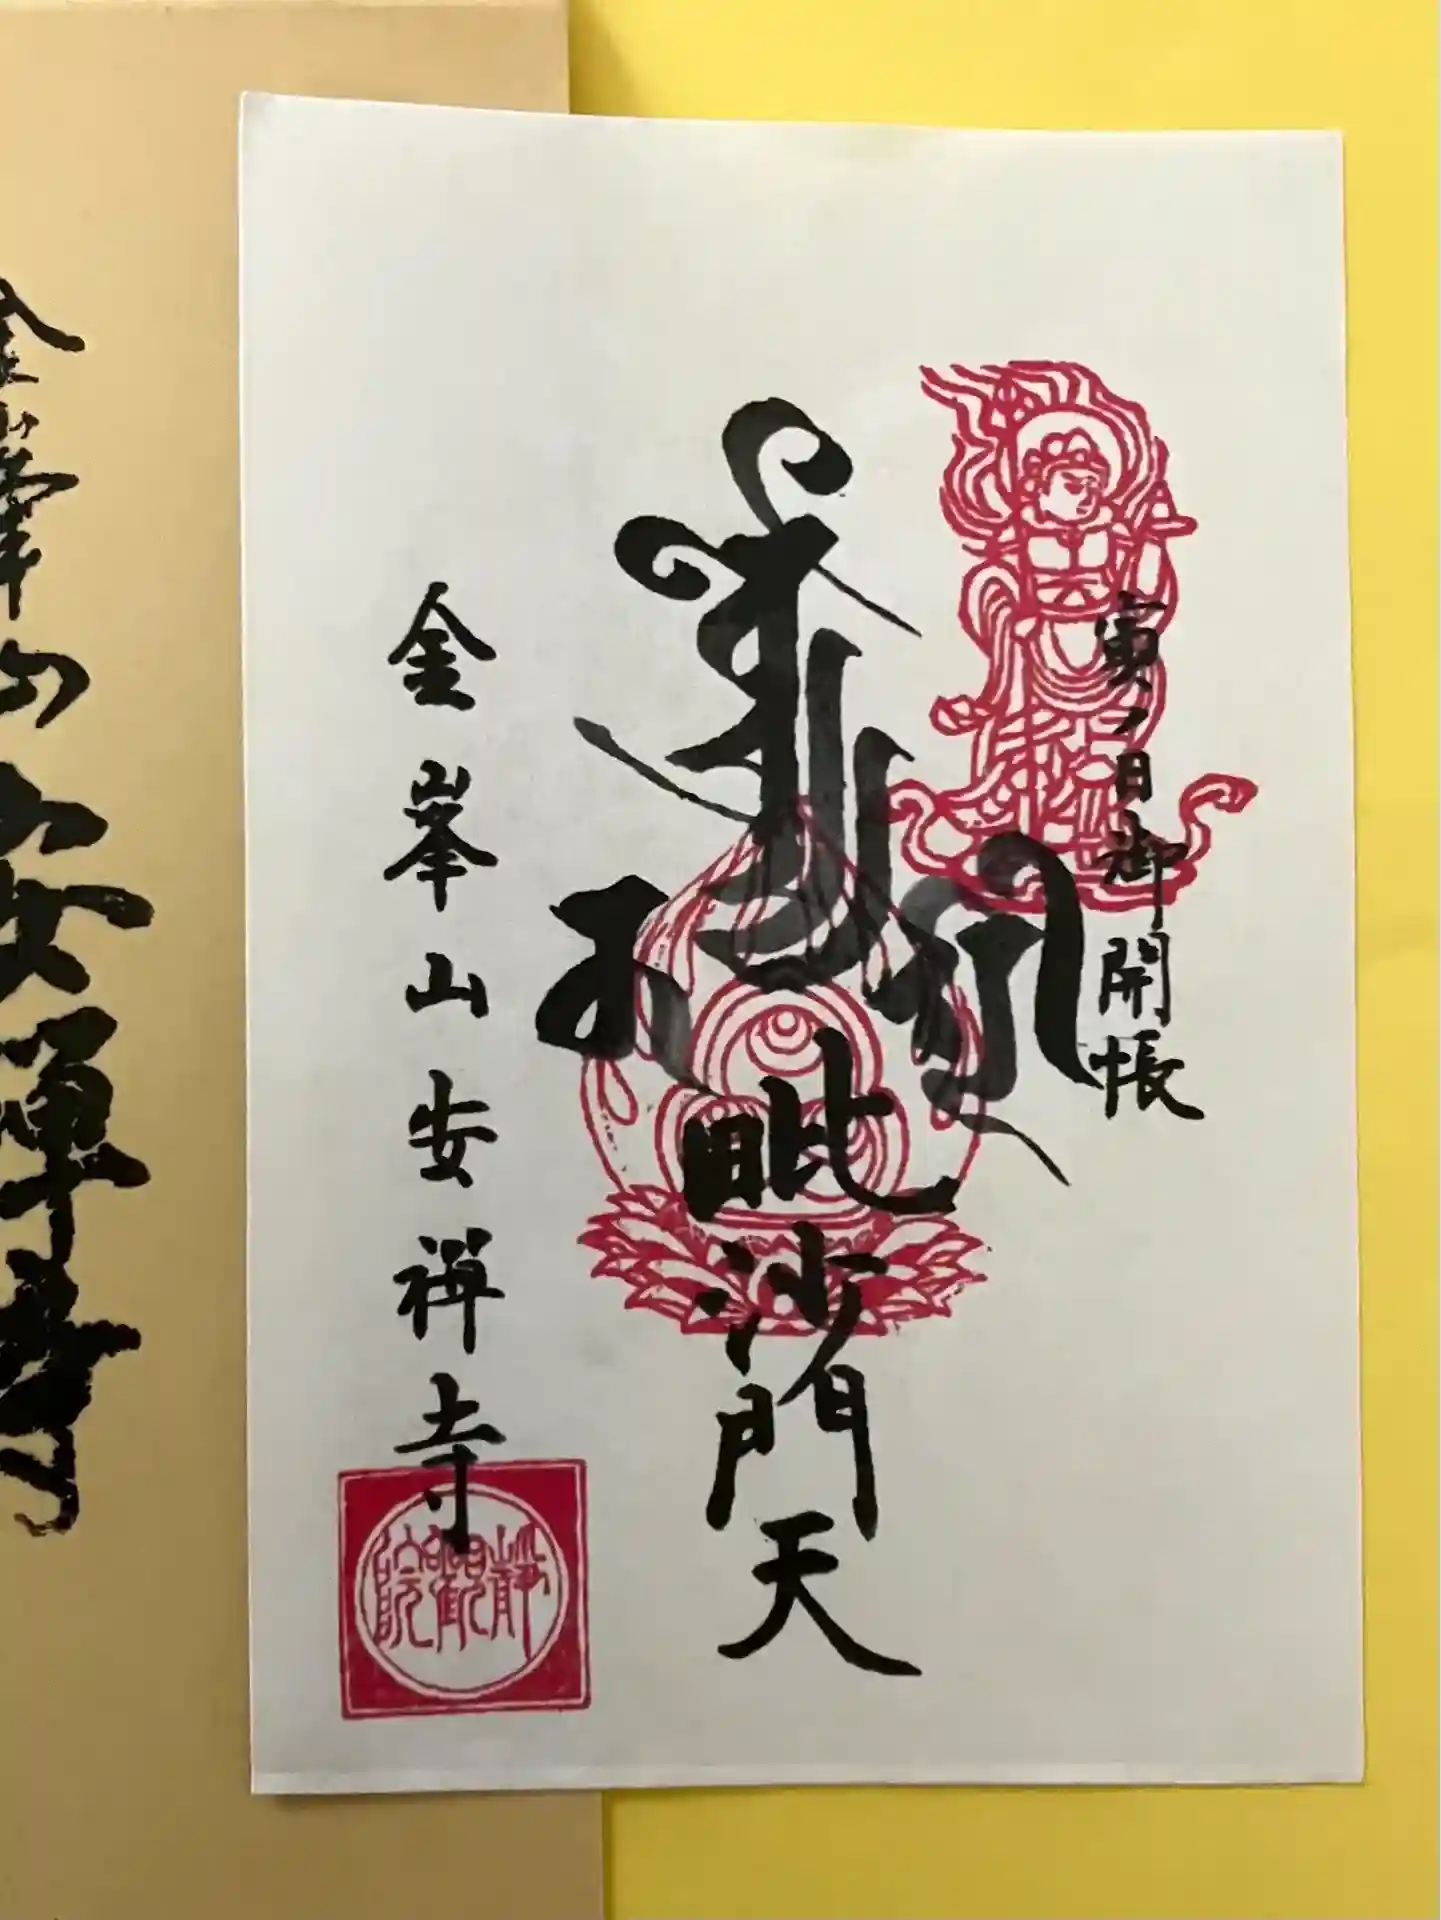 寅ノ日御開帳
毘沙門天
金峯山安禅寺
靜觀院
金峯山
安禅寺